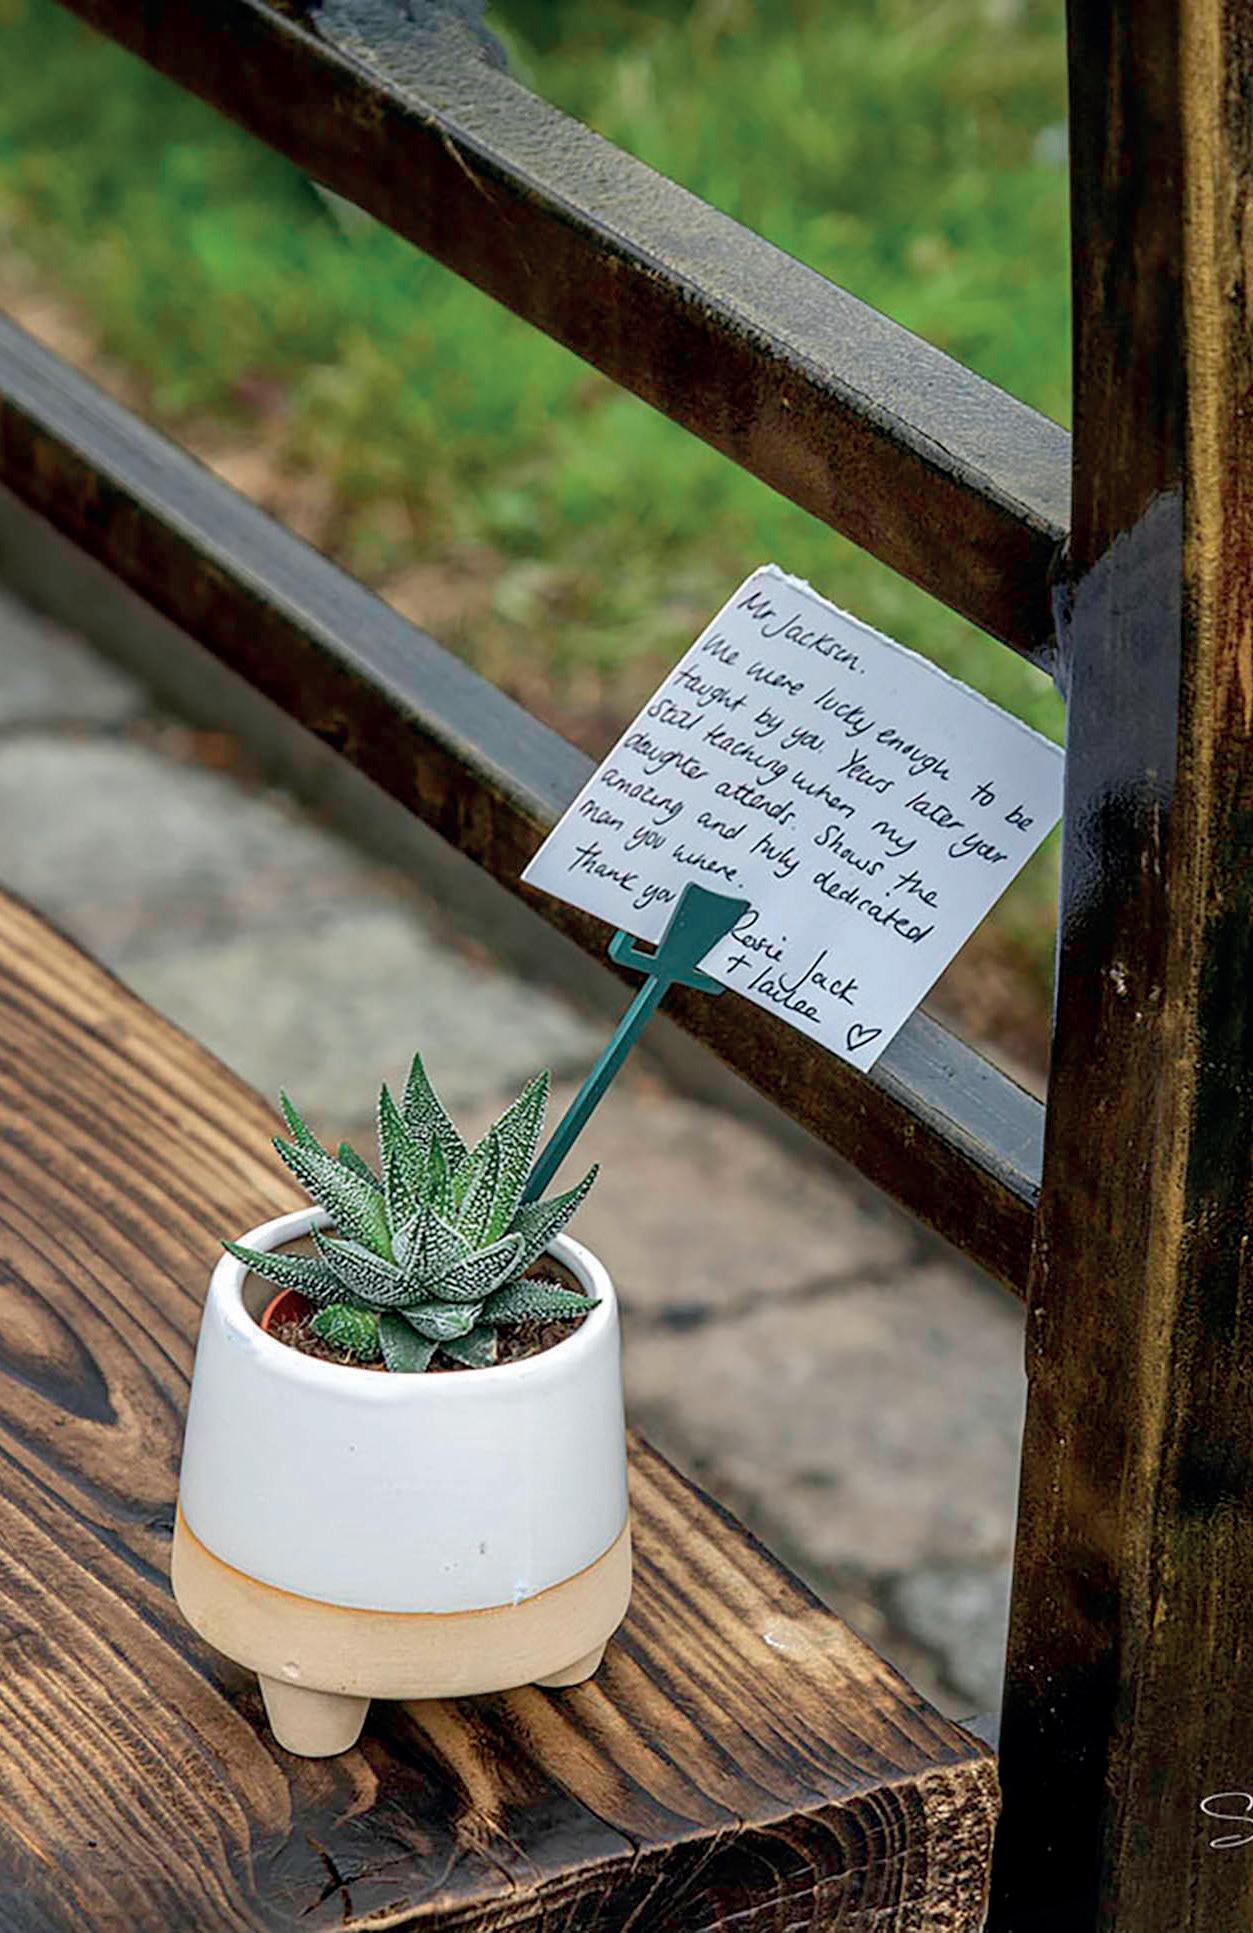 Mr Jackson.
We were lucky enough to be
taught by you. Years later your
still teaching when my
daughter attends. Shows the
amazing and truly dedicated
man you where.
Thank you
Rosie Jack
+
♡